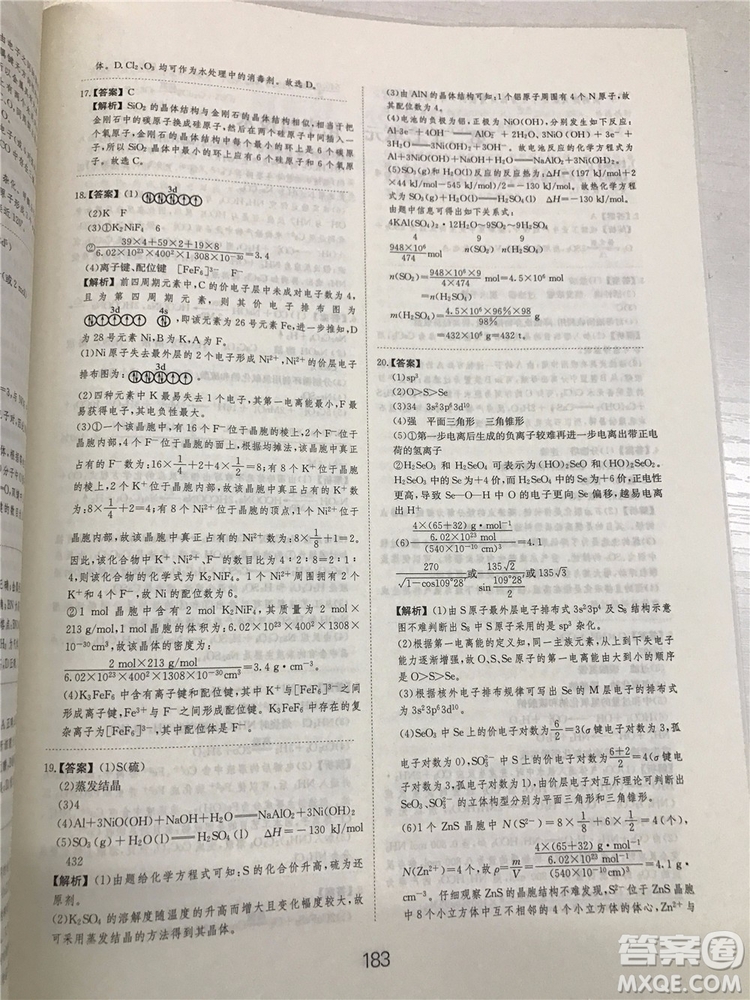 体。D. Cl₂、O₃ 均可作为水处理中的消毒剂。故选 D。
17.【答案】C
【解析】SiO₂ 的晶体结构与金刚石的晶体结构相似，相当于把金
刚石中的碳原子换成硅原子，然后在两个硅原子中间插入一
个氧，金刚石晶体中最小的环上有 6 个碳原子，所以 SiO₂ 的
晶体中最小的环上应有 6 个硅原子和 6 个氧原子。故选 C。
18.【答案】(1) 3d
(2)K F
(3)①K₂NiF₄ 6
② (39×4+59×2+19×8)/(6.02×10²³×400²×1 308×10⁻³⁰)=3.4
(4)离子键、配位键 [FeF₆]³⁻ F⁻
【解析】前四周期元素中，C 的价电子层中未成对电子数为 4，
且为第四周期元素，则其价电子排布图为
3d 4s ，即该元素为 26 号元素 Fe，进一步推知，D
为 28 号元素 Ni，B 为 K，A 为 F。
(1)Ni 原子失去最外层的 2 个电子形成 Ni²⁺，Ni²⁺ 的价层电子
排布图为 3d
(2)四种元素中，K 最易失去 1 个电子，其第一电离能最小，F 最
易获得电子，其电负性最大。
(3)①一个该晶胞中，有 16 个 F⁻ 位于晶胞的棱上，4 个 F⁻ 位
于晶胞的面上，2 个 F⁻ 位于晶胞内部，故该晶胞中真正
占有的 F⁻ 数为 16×1/4+4×1/2+2=8；有 8 个 K⁺ 位于晶胞
的棱上，2 个 K⁺ 位于晶胞内部，故该晶胞中真正占有的 K⁺ 数
为：8×1/4+2=4；有 8 个 Ni²⁺ 位于晶胞的顶点，1 个 Ni²⁺ 位于
晶胞内部，故该晶胞中真正占有的 Ni²⁺ 数：8×1/8+1=2。
因此，该化合物中 K⁺、Ni²⁺、F⁻ 的数目比为 4：2：8=2：1：
4，则该化合物的化学式为 K₂NiF₄。1 个 Ni²⁺ 周围拥有 2 个
K⁺ 和 4 个 F⁻，故 Ni 的配位数为 6。
②1 mol 晶胞中含有 2 mol K₂NiF₄，其质量为 2 mol×
213 g/mol，1 mol 晶胞的体积为：6.02×10²³×400²×1 308×
10⁻³⁰cm³，故该晶体的密度为：
(2 mol×213 g/mol)/(6.02×10²³×400²×1 308×10⁻³⁰cm³)=3.4 g·cm⁻³。
(4)K₃FeF₆ 中含有离子键和配位键，其中 K⁺ 与[FeF₆]³⁻ 为离
子键，Fe³⁺ 与 F⁻ 之间为配位键。K₃FeF₆ 中存在的复
杂离子为[FeF₆]³⁻，其配体是 F⁻。
19.【答案】(1)S(硫)
(2)蒸发结晶
(3)4
(4)Al+3NiO(OH)+NaOH+H₂O══NaAlO₂+3Ni(OH)₂
(5)SO₃(g)+H₂O(l)══H₂SO₄(l) ΔH=−130 kJ/mol
432
【解析】(1)由题给化学方程式可知：S 的化合价升高，硫为还
原剂。
(2)K₂SO₄ 的溶解度随温度的升高而增大且变化幅度较大，故
可采用蒸发结晶的方法得到其晶体。
(3)由 AlN 的晶体结构可知，1 个铝原子周围有 4 个 N 原子，故
其配位数为 4。
(4)电池的负极为铝，正极为 NiO(OH)，负极反应为
Al−3e⁻+4OH⁻══AlO₂⁻+2H₂O，正极反应为 3NiO(OH)+3e⁻+
3H₂O══3Ni(OH)₂+3OH⁻，故电池反应的化学方程式为
Al+3NiO(OH)+NaOH+H₂O══NaAlO₂+3Ni(OH)₂。
(5)SO₃(g)与液态水反应的反应热为：ΔH=(197 kJ/mol+
545 kJ/mol×2)÷2=−130 kJ/mol，故热化学方程式为
SO₃(g)+H₂O(l)══H₂SO₄(l) ΔH=−130 kJ/mol。
由题中信息可得出如下关系式：
4KAl(SO₄)₂·12H₂O~9SO₂~9SO₃~9H₂SO₄
4 9 9
948×10⁶/474 n(SO₂) n(H₂SO₄)
n(SO₂)=(948×10⁶×9)/(4×474) mol=4.5×10⁶ mol
n(H₂SO₄)
m(H₂SO₄)=(4.5×10⁶×96%×98)/98% g
=432×10⁶ g=432 t。
20.【答案】
(1)sp³
(2)O>S>Se
(3)34 3s²3p⁶3d¹⁰
(4)强 平面三角形 三角锥形
(5)①第一步电离后生成的负离子较难再进一步电离出带正电
荷的氢离子
②H₂SeO₃ 和 H₂SeO₄ 可表示为(HO)₂SeO 和(HO)₂SeO₂。
H₂SeO₃ 中的 Se 为+4 价，而 H₂SeO₄ 中的 Se 为+6 价，正电
性更高，导致 Se—O—H 中 O 的电子更向 Se 偏移，越易电离
出 H⁺
(6) [4×(65+32) g·mol⁻¹/6.02×10²³ mol⁻¹]/(540×10⁻¹⁰cm)³=4.1
270/√(1−cos109°28′) 或 135√2/sin(109°28′/2) 或 135√3
【解析】(1)由 S 原子最外层电子排布式 3s²3p⁴ 及 S₈ 结构示意
图不难判断出 S 原子采用的是 sp³ 杂化。
(2)根据第一电离能的定义可知，同一主族元素，从上到下失电子
能力增强，故 O、S、Se 原子的第一电离能由大到小的顺序
为 O>S>Se。
(3)根据核外电子排布规律可以写出 Se 的 M 层电子的排布式
为 3s²3p⁶3d¹⁰。
(4)SeO₃ 中 Se 的价层电子对数为 6/2=3(σ键电子对数为
3，孤电子对数为 0)，SO₃²⁻ 中 S 的价层电子对数为 (6+2)/2=
4(σ键电子对数为 3，孤电子对数为 1)，由价层电子对互斥理论可判断出
SeO₃、SO₃²⁻ 的立体构型分别为平面三角形和三角锥形。
(6)1 个 ZnS 晶胞中 N(S²⁻)=8×1/8+6×1/2=4(个)，
N(Zn²⁺)=4(个)，故 ρ=m/V=[4×(65+32) g·mol⁻¹/6.02×10²³ mol⁻¹]/(540×10⁻¹⁰cm)³=4.1 g·
cm⁻³。仔细观察 ZnS 的晶胞结构不难发现，S²⁻ 位于 ZnS 晶胞
中 8 个小立方体中互不相邻的 4 个小立方体的体心，Zn²⁺ 与
183
答案圈
MXQE.COM